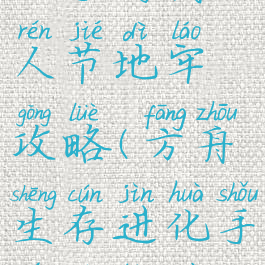 rén jié dì láo
人节地牢
gōng lüè fāng zhōu
攻略(方舟
shēng cún jìn huà shǒu
生存进化手